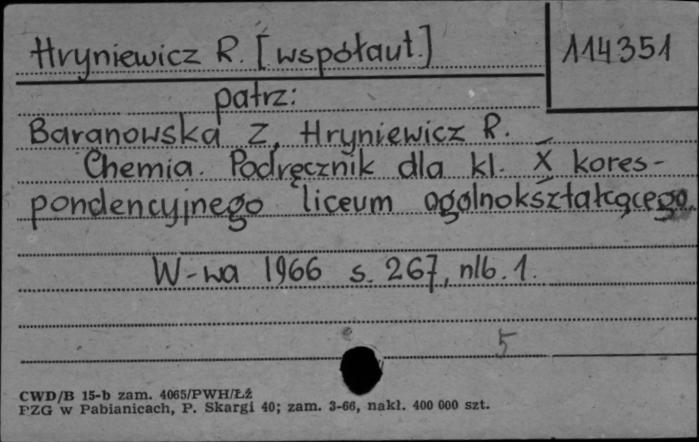 Hryniewicz R. [współaut.]
114351
patrz:
Baranowska Z, Hryniewicz R.
Chemia. Podręcznik dla kl. X kores-
pondencyjnego liceum ogólnokształcącego.
W-wa 1966 s. 267, nlb. 1.
5
CWD/B 15-b zam. 4065/PWH/ŁŹ
PZG w Pabianicach, P. Skargi 40; zam. 3-66, nakł. 400 000 szt.